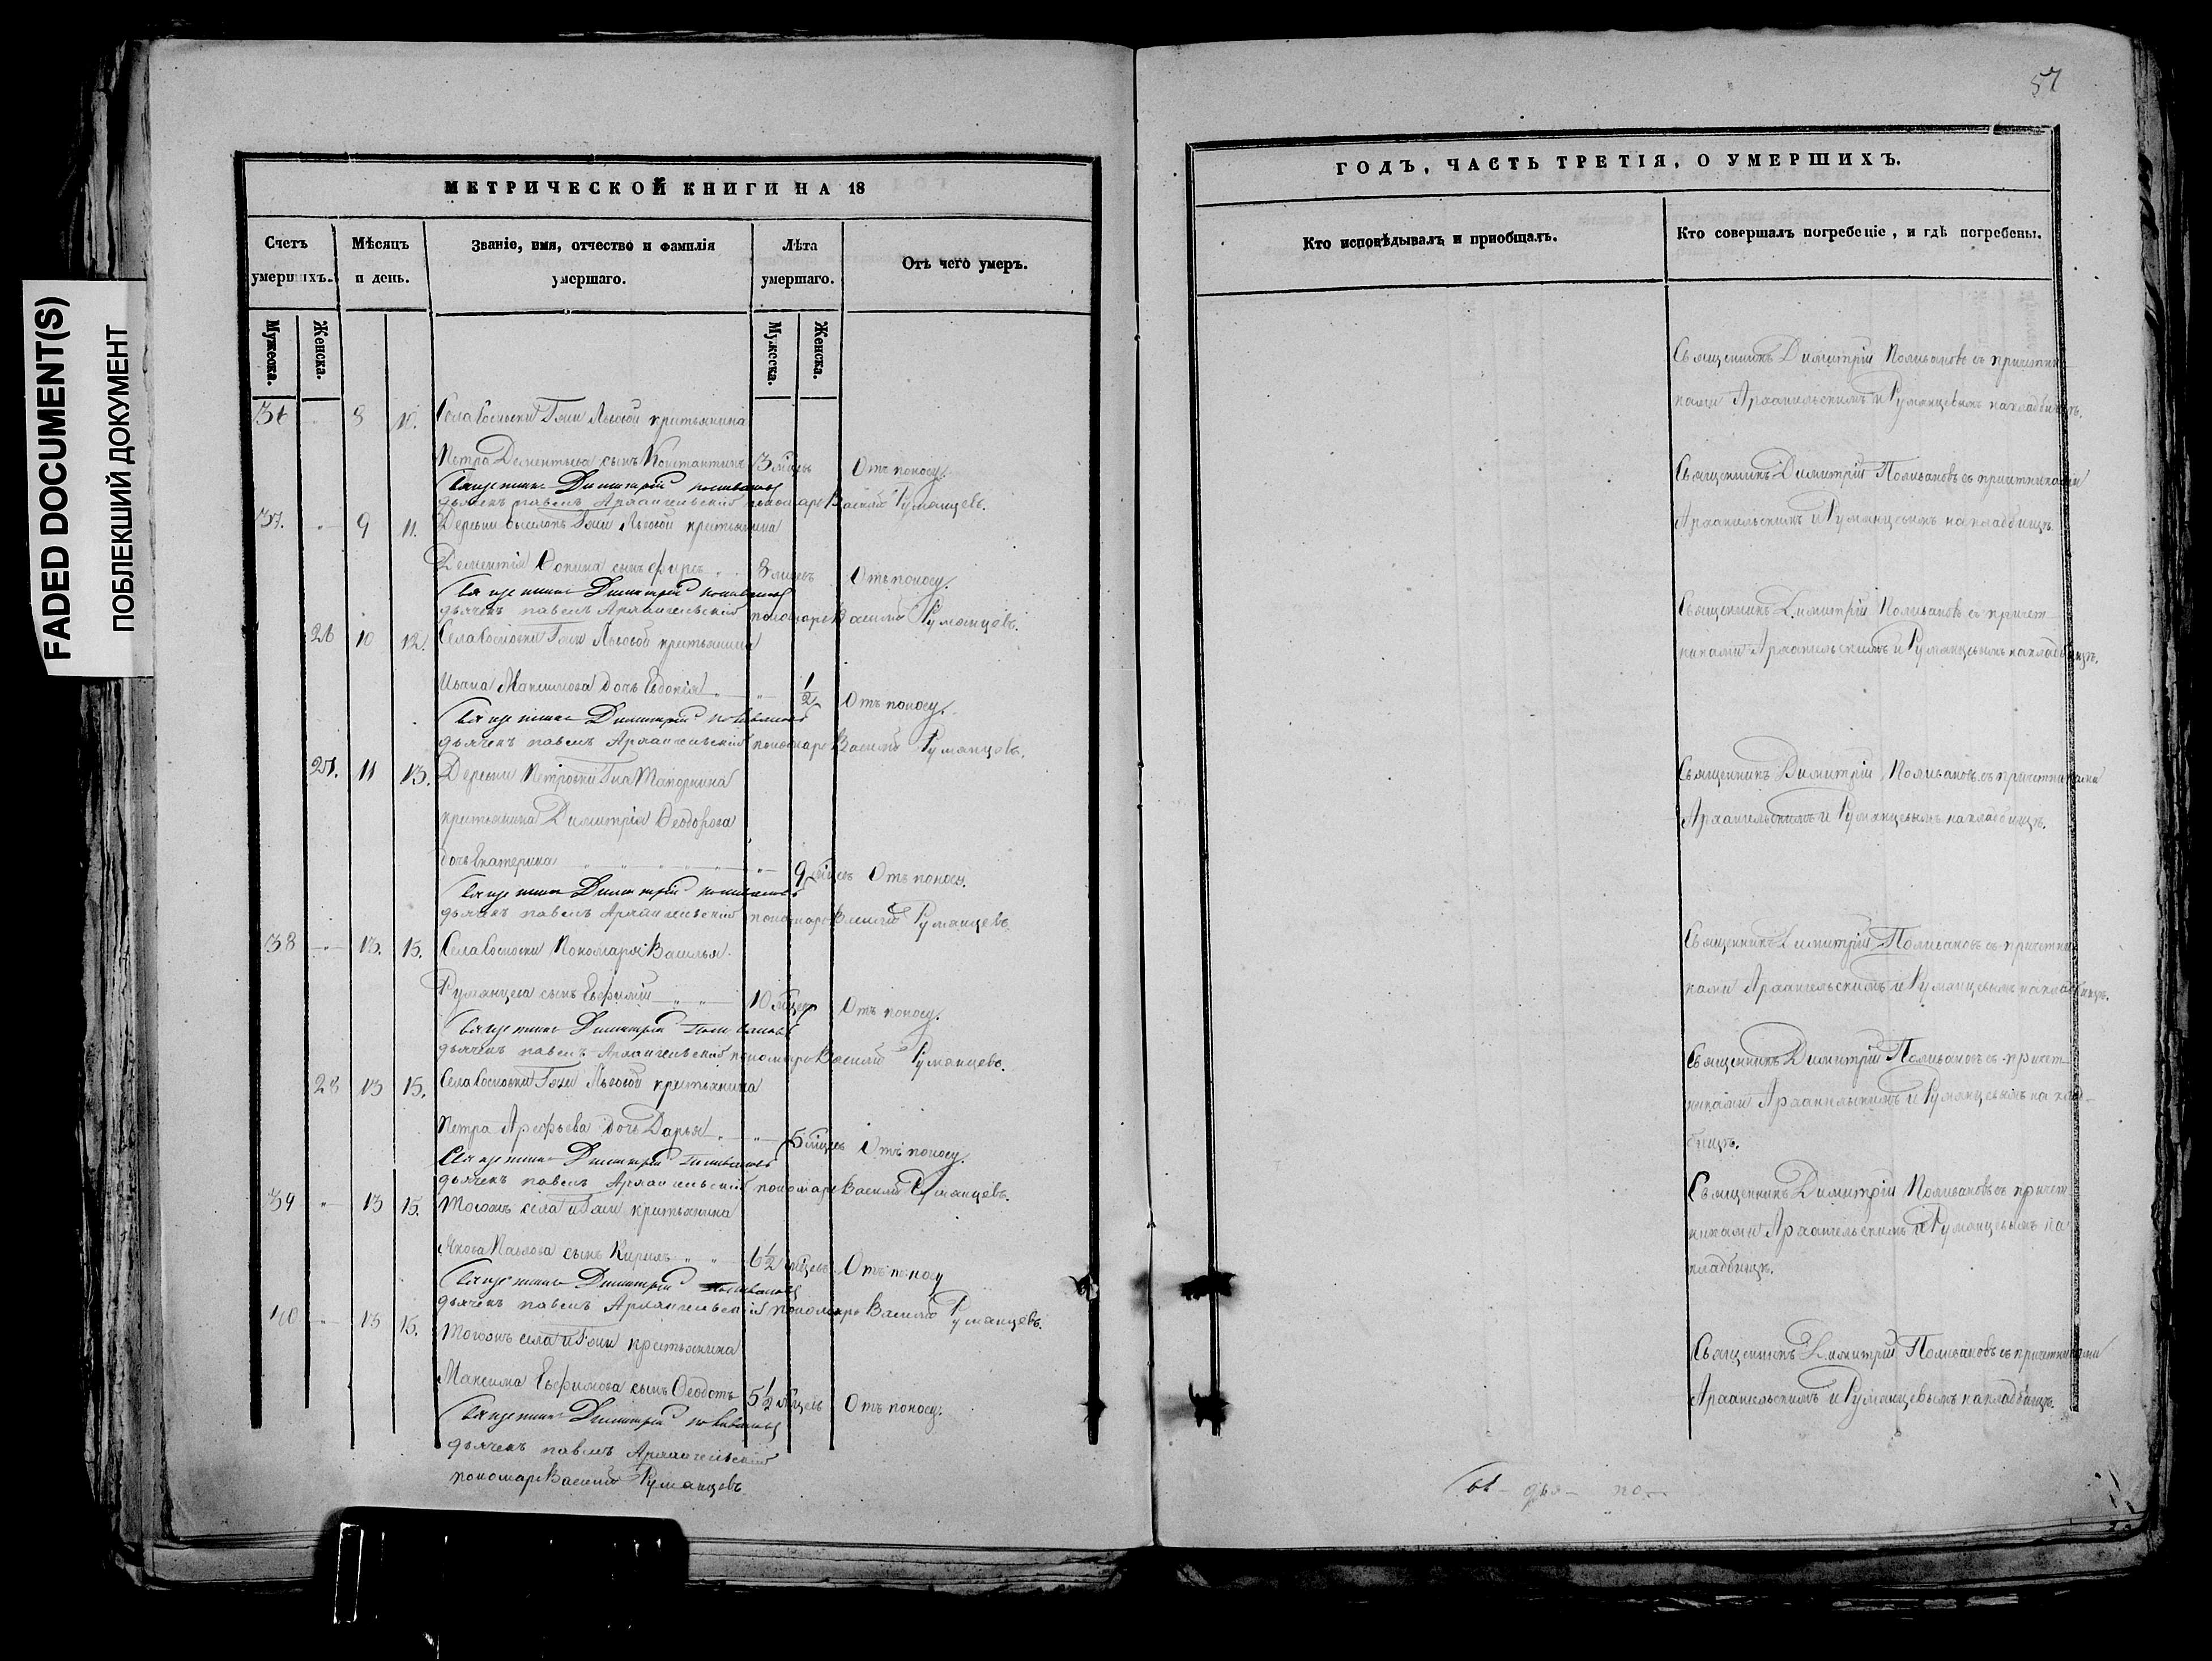 FADED DOCUMENT(S)
ПОБЛЕКШИЙ ДОКУМЕНТ
МЕТРИЧЕСКОЙ КНИГИ НА 18
Счетъ умершихъ.
Мѣсяцъ и день.
Званіе, имя, отчество и фамилія умершаго.
Лѣта умершаго.
Отъ чего умеръ.
Мужеска. Женска.
Мужеска. Женска.
36 8 10. Села Сосновки Гжи Львовой крестьянина
Петра Дементьева сынъ Константинъ 3 Отъ поносу.
Священникъ Димитрій Поливановъ
дьячекъ павелъ Архангельскій пономарь Василій Румянцевъ.
37. 9 11. Деревни Гжи Львовой крестьянина
Дементія сынъ Фирсъ 8 Отъ поносу.
Священникъ Димитрій Поливановъ
дьячекъ павелъ Архангельскій пономарь Василій Румянцевъ.
26 10 12. Села Сосновки Гжи Львовой крестьянина
Ивана Максимова дочь Евдокія 1/2 Отъ поносу.
Священникъ Димитрій поливановъ
дьячекъ павелъ Архангельскій пономарь Василій Румянцевъ.
27. 11 13. Деревни Петровки Гна
крестьянина Димитрія Ѳеодорова
дочь Екатерина 9 Отъ поносу.
Священникъ Димитрій поливановъ
дьячекъ павелъ Архангельскій пономарь Василій Румянцевъ
38 13. 15. Села Сосновки Пономаря Василья
Румянцева сынъ Евфимій 10 Отъ поносу.
Священникъ Димитрій Поливановъ
дьячекъ павелъ Архангельскій пономарь Василій Румянцевъ.
28 13 15. Села Сосновки Гжи Львовой крестьянина
Петра Арефьева дочь Дарья 5 Отъ поносу.
Священникъ Димитрій Поливановъ
дьячекъ павелъ Архангельскій пономарь Василій Румянцевъ.
39 13 15. Тогожъ села и Гжи крестьянина
Якова Павлова сынъ Кирилъ 6 1/2 Отъ поносу
Священникъ Димитрій Поливановъ
дьячекъ павелъ Архангельскій пономарь Василій Румянцевъ.
40 13 15. Тогожъ села и Гжи крестьянина
Максима Евфимова сынъ Ѳеодотъ 5 1/2 Отъ поносу.
Священникъ Димитрій поливановъ
дьячекъ павелъ Архангельскій
пономарь Василій Румянцевъ
57
ГОДЪ, ЧАСТЬ ТРЕТІЯ, О УМЕРШИХЪ.
Кто исповѣдывалъ и пріобщалъ.
Кто совершалъ погребеніе, и гдѣ погребены.
Священникъ Димитрій Поливановъ съ причетни-
ками Архангельскимъ и Румянцевымъ на кладбищѣ.
Священникъ Димитрій Поливановъ съ причетниками
Архангельскимъ и Румянцевымъ на кладбищѣ.
Священникъ Димитрій Поливановъ съ причет-
никами Архангельскимъ и Румянцевымъ на кладбищѣ.
Священникъ Димитрій Поливановъ съ причетниками
Архангельскимъ и Румянцевымъ на кладбищѣ.
Священникъ Димитрій Поливановъ съ причетни-
ками Архангельскимъ и Румянцевымъ на кладбищѣ.
Священникъ Димитрій Поливановъ съ причет-
никами Архангельскимъ и Румянцевымъ на клад-
бищѣ.
Священникъ Димитрій Поливановъ съ причет-
никами Архангельскимъ и Румянцевымъ на
кладбищѣ.
Священникъ Димитрій Поливановъ съ причетниками
Архангельскимъ и Румянцевымъ на кладбищѣ.
Св- дья- по-